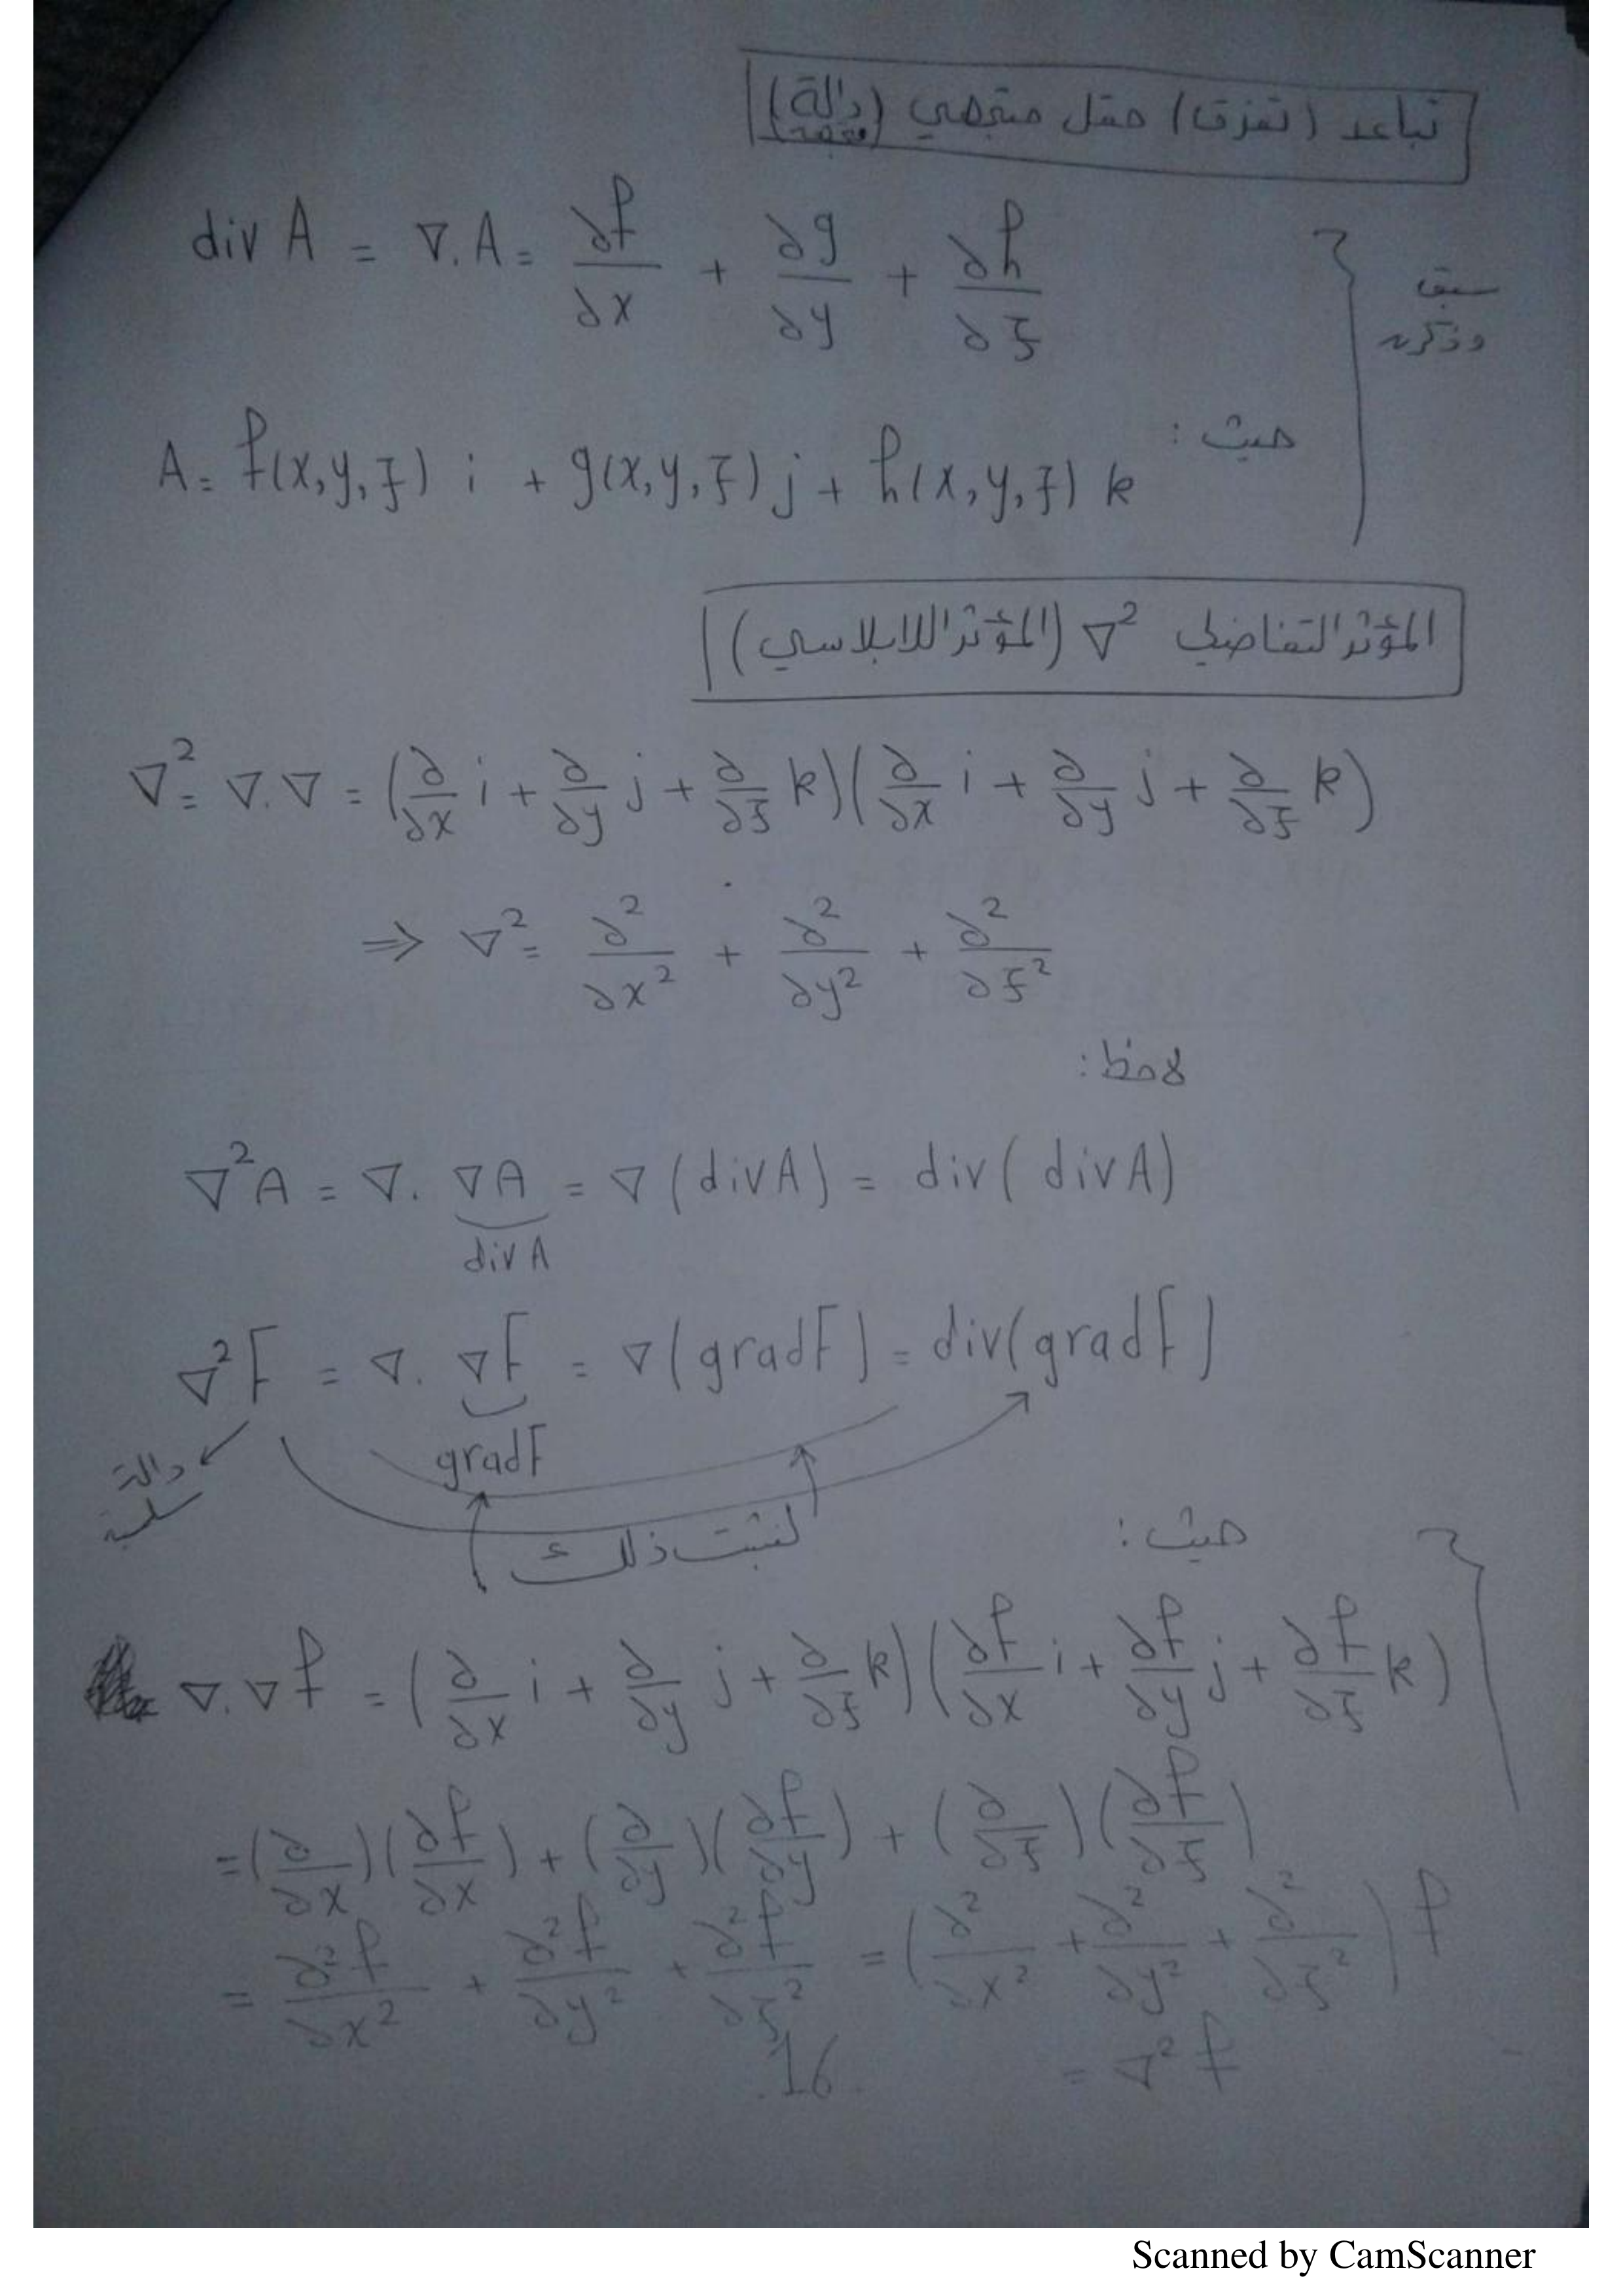 تباعد (تفرق) حقل متجهي (دالة متجهة)
div A = ∇.A = ∂f/∂x + ∂g/∂y + ∂h/∂z
سبق وذكره
حيث :
A = f(x,y,z) i + g(x,y,z) j + h(x,y,z) k
المؤثر التفاضلي ∇² (المؤثر اللابلاسي)
∇² = ∇.∇ = (∂/∂x i + ∂/∂y j + ∂/∂z k)(∂/∂x i + ∂/∂y j + ∂/∂z k)
⇒ ∇² = ∂²/∂x² + ∂²/∂y² + ∂²/∂z²
لاحظ:
∇²A = ∇. ∇A = ∇(divA) = div(divA)
divA
∇²F = ∇. ∇F = ∇(gradF) = div(gradF)
gradF
دالة
سلمية
لنثبت ذلك
حيث :
∇.∇f = (∂/∂x i + ∂/∂y j + ∂/∂z k)(∂f/∂x i + ∂f/∂y j + ∂f/∂z k)
= (∂/∂x)(∂f/∂x) + (∂/∂y)(∂f/∂y) + (∂/∂z)(∂f/∂z)
= ∂²f/∂x² + ∂²f/∂y² + ∂²f/∂z² = (∂²/∂x² + ∂²/∂y² + ∂²/∂z²) f
= ∇²f
.16.
Scanned by CamScanner